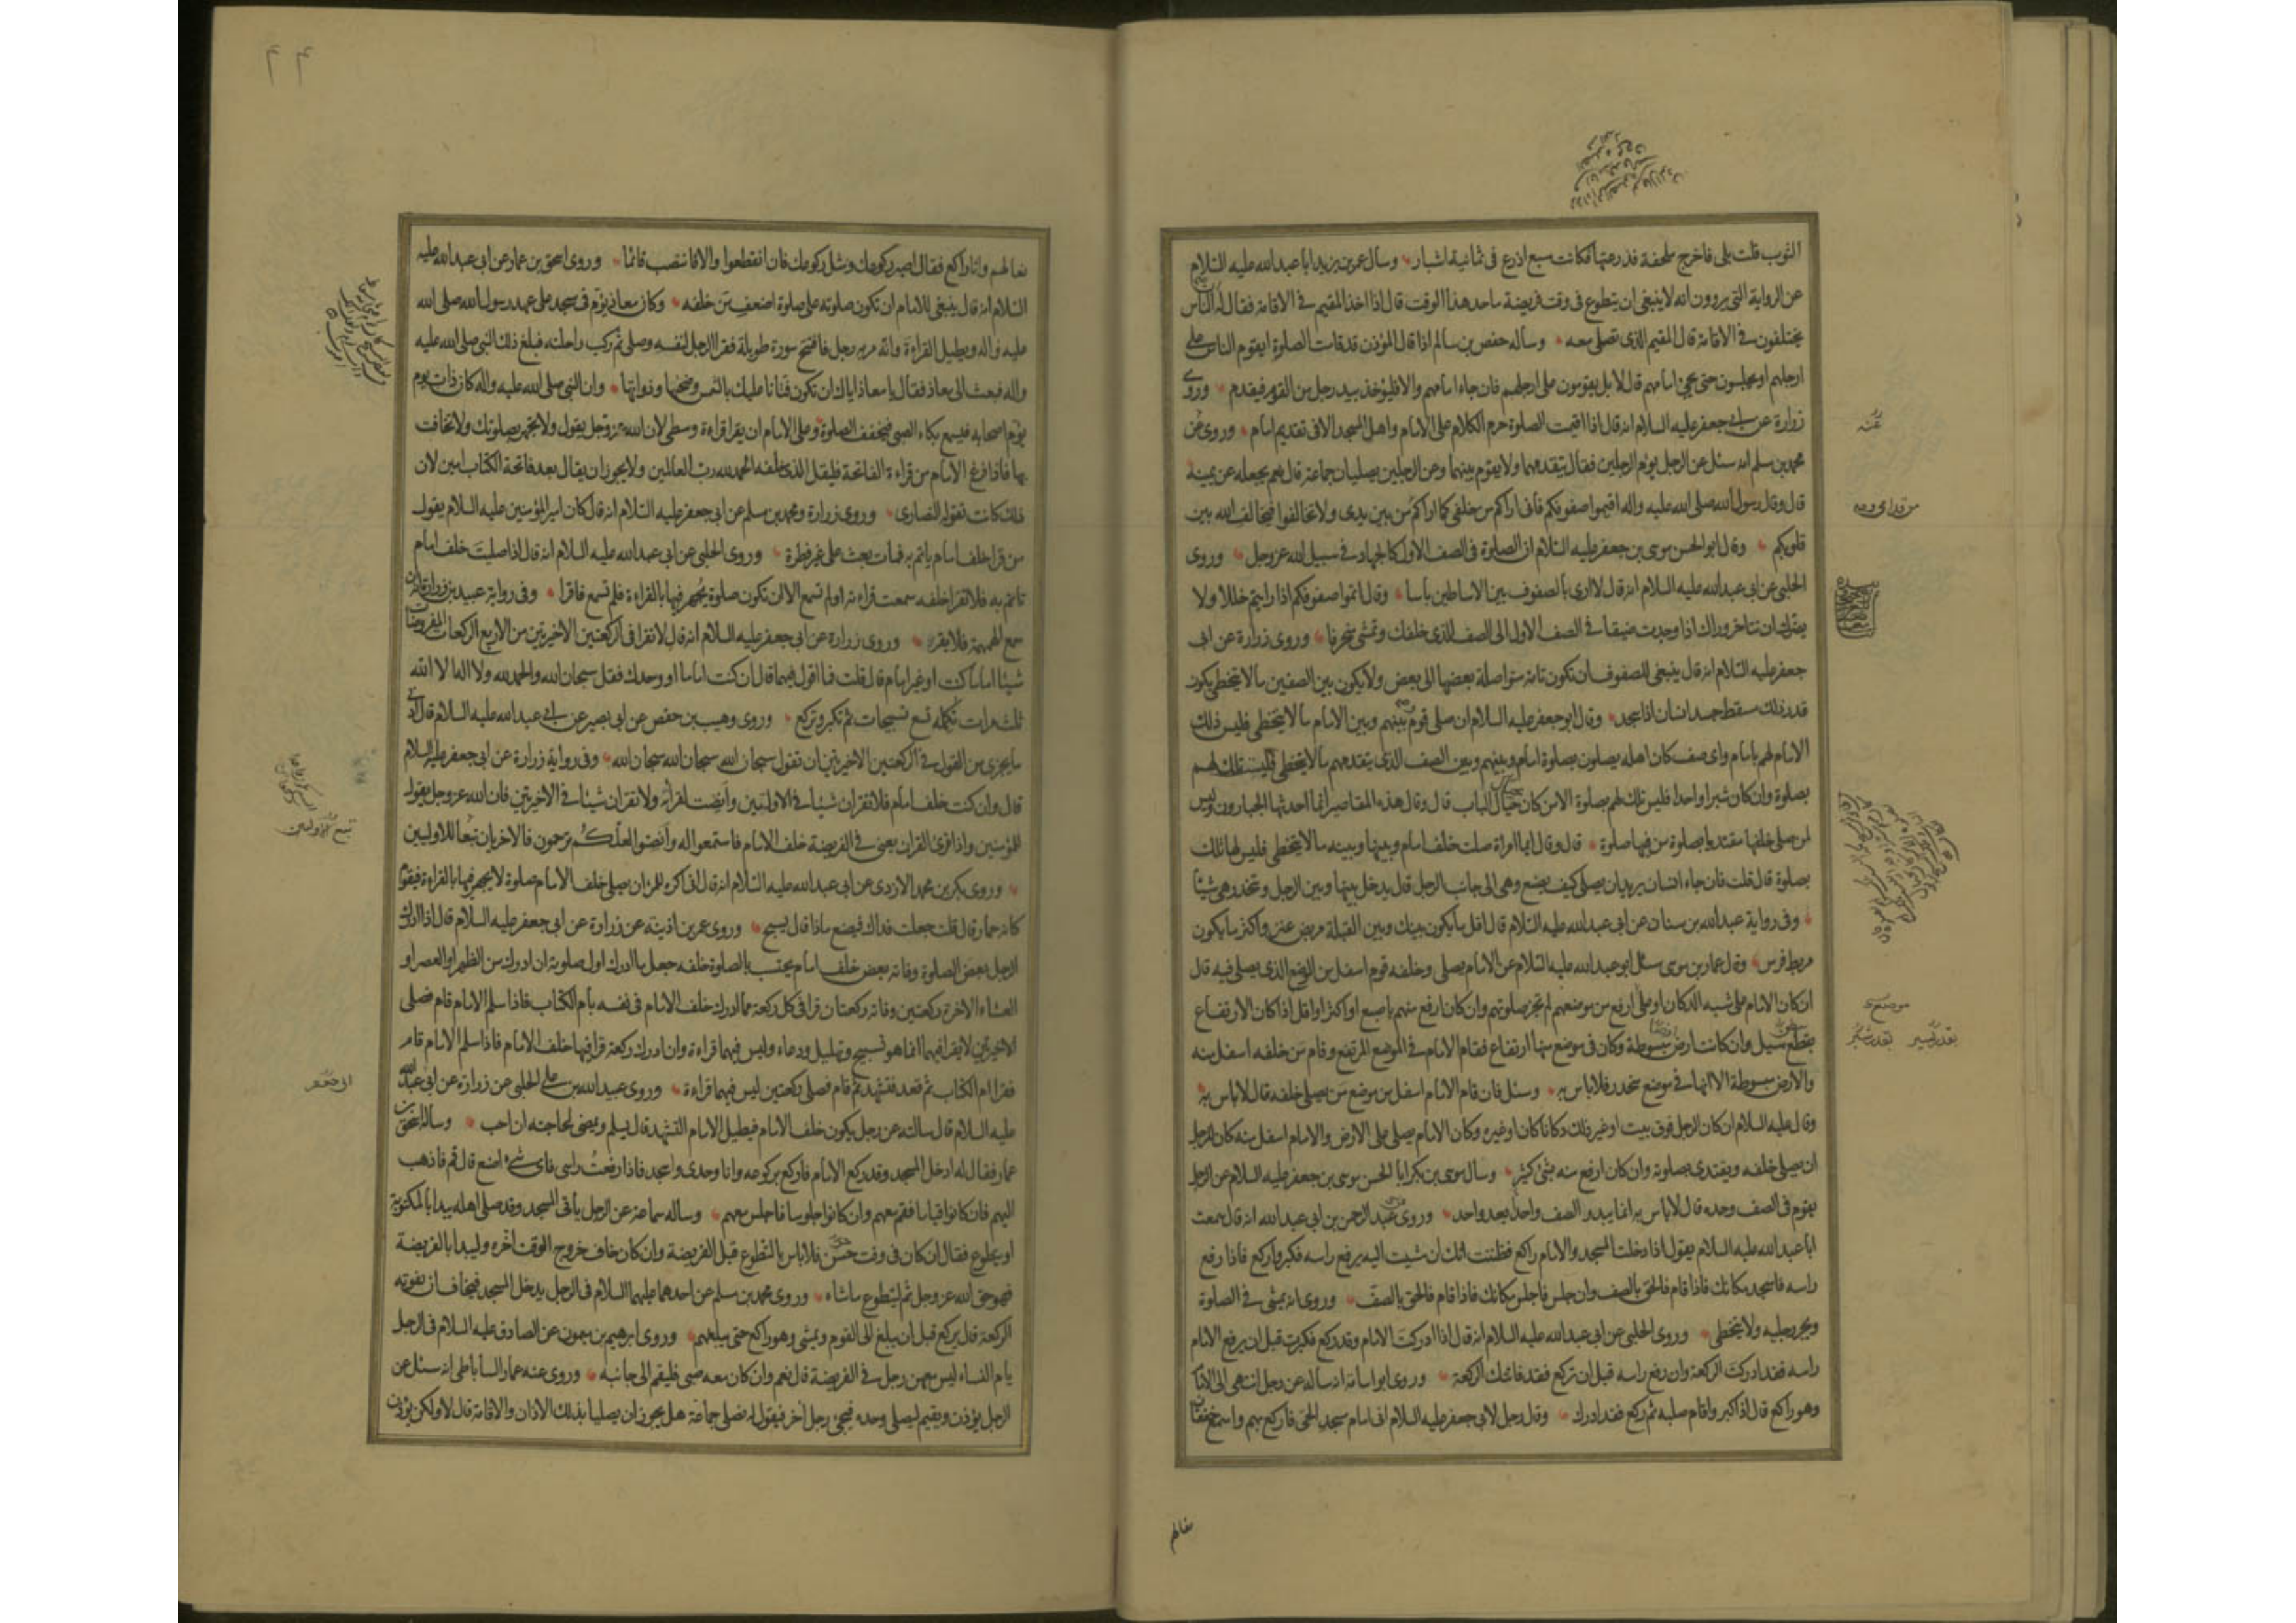 الثوب قلت بلى فاخرج ملحفة فذرعتها فكانت سبع اذرع فى ثمانية اشبار وسال عمر بن يزيد ابا عبدالله عليه السلام
عن الرواية التى يروون انه لا ينبغى ان يتطوع فى وقت فريضة ماحد هذا الوقت قال اذا اخذ المقيم فى الاقامة فقال له الناس
يختلفون فى الاقامة قال المقيم الذى تصلى معه وساله حفص بن سالم اذا قال المؤذن قد قامت الصلوة ايقوم الناس على
ارجلهم او يجلسون حتى يجئ امامهم قال لا بل يقومون على ارجلهم فان جاء امامهم والا فليؤخذ بيد رجل من القوم فيقدم وروى
زرارة عن ابى جعفر عليه السلام انه قال اذا اقيمت الصلوة حرم الكلام على الامام واهل المسجد الا فى تقديم امام وروى عن
محمد بن مسلم انه سئل عن الرجل يؤم الرجلين فقال يتقدمهما ولا يقوم بينهما وعن الرجلين يصليان جماعة قال نعم يجعله عن يمينه
قال وقال رسول الله صلى الله عليه واله اقيموا صفوفكم فانى اراكم من خلفى كما اراكم من بين يدى ولا تخالفوا فيخالف الله بين
قلوبكم وقال ابو الحسن موسى بن جعفر عليه السلام ان الصلوة فى الصف الاول كالجهاد فى سبيل الله عز وجل وروى
الحلبى عن ابى عبدالله عليه السلام انه قال لا ارى بالصفوف بين الاساطين باسا وقال اتموا صفوفكم اذا رايتم خللا ولا
يضرك ان تتاخر وراك اذا وجدت ضيقا فى الصف الاول الى الصف الذى خلفك وتمشى منحرفا وروى زرارة عن ابى
جعفر عليه السلام انه قال ينبغى للصفوف ان تكون تامة متواصلة بعضها الى بعض ولا يكون بين الصفين ما لا يتخطى يكون
قدر ذلك مسقط جسد انسان اذا سجد وقال ابو جعفر عليه السلام ان صلى قوم بينهم وبين الامام ما لا يتخطى فليس ذلك
الامام لهم بامام واى صف كان اهله يصلون بصلوة امام وبينهم وبين الصف الذى يتقدمهم ما لا يتخطى فليست تلك لهم
بصلوة وان كان شبرا واحدا فليس تلك لهم بصلوة الا من كان حيال الباب قال وقال هذه المقاصير انما احدثها الجبارون وليس
لمن صلى خلفها مقتديا بصلوة من فيها صلوة قال وقال ايما امراة صلت خلف امام وبينها وبينه ما لا يتخطى فليس لها تلك
بصلوة قال قلت فان جاء انسان يريد ان يصلى كيف يصنع وهى الى جانب الرجل قال يدخل بينها وبين الرجل وتنحدر هى شيئا
وفى رواية عبدالله بن سنان عن ابى عبدالله عليه السلام قال اقل ما يكون بينك وبين القبلة مربض عنز واكثر ما يكون
مربط فرس وقال عمار بن موسى سئل ابو عبدالله عليه السلام عن الامام يصلى وخلفه قوم اسفل من الموضع الذى يصلى فيه قال
ان كان الامام على شبه الدكان او على ارفع من موضعهم لم تجز صلوتهم وان كان ارفع منهم باصبع او اكثر او اقل اذا كان الارتفاع
بقطع سيل وان كانت ارض مبسوطة وكان فى موضع منها ارتفاع فقام الامام فى الموضع المرتفع وقام من خلفه اسفل منه
والارض مبسوطة الا انها فى موضع منحدر فلا باس به وسئل فان قام الامام اسفل من موضع من يصلى خلفه قال لا باس به
وقال عليه السلام ان كان الرجل فوق بيت او غير ذلك دكانا كان او غيره وكان الامام يصلى على الارض والامام اسفل منه كان للرجل
ان يصلى خلفه ويقتدى بصلوته وان كان ارفع منه بشئ كثير وسال موسى بن بكر ابا الحسن موسى بن جعفر عليه السلام عن الرجل
يقوم فى الصف وحده قال لا باس به انما يبدو الصف واحدا بعد واحد وروى عبد الرحمن بن ابى عبدالله انه قال سمعت
ابا عبدالله عليه السلام يقول اذا دخلت المسجد والامام راكع فظننت انك ان مشيت اليه يرفع راسه فكبر واركع فاذا رفع
راسه فاسجد مكانك فاذا قام فالحق بالصف وان جلس فاجلس مكانك فاذا قام فالحق بالصف وروى انه يمشى فى الصلوة
ويجر رجليه ولا يتخطى وروى الحلبى عن ابى عبدالله عليه السلام انه قال اذا ادركت الامام وقد ركع فكبرت قبل ان يرفع الامام
راسه فقد ادركت الركعة وان رفع راسه قبل ان تركع فقد فاتتك الركعة وروى ابو اسامة انه ساله عن رجل انتهى الى الامام
وهو راكع قال اذا كبر واقام صلبه ثم ركع فقد ادرك وقال رجل لابى جعفر عليه السلام انى امام مسجد الحى فاركع بهم واسمع خفقان
نعالهم
عنه
موضعى
بقدر يسير بقدر شبر
نعالهم وانا راكع فقال اصبر ركوعك ومثل ركوعك فان انقطعوا والا فانتصب قائما وروى اسحق بن عمار عن ابى عبدالله عليه
السلام انه قال ينبغى للامام ان تكون صلوته على صلوة اضعف من خلفه وكان معاذ يؤم فى مسجد على عهد رسول الله صلى الله
عليه واله ويطيل القراءة وانه مر به رجل فافتتح سورة طويلة فقرا الرجل لنفسه وصلى ثم ركب راحلته فبلغ ذلك النبى صلى الله عليه
واله فبعث الى معاذ فقال يا معاذ اياك ان تكون فتانا عليك بالشمس وضحيها وذواتها وان النبى صلى الله عليه واله كان ذات يوم
يؤم اصحابه فيسمع بكاء الصبى فيخفف الصلوة وعلى الامام ان يقرا قراءة وسطى لان الله عز وجل يقول ولا تجهر بصلوتك ولا تخافت
بها فاذا فرغ الامام من قراءة الفاتحة فليقل الذى خلفه الحمد لله رب العالمين ولا يجوز ان يقال بعد فاتحة الكتاب امين لان
ذلك كانت تقوله النصارى وروى زرارة ومحمد بن مسلم عن ابى جعفر عليه السلام انه قال كان امير المؤمنين عليه السلام يقول
من قرا خلف امام ياتم به فمات بعث على غير فطرة وروى الحلبى عن ابى عبدالله عليه السلام انه قال اذا صليت خلف امام
تاتم به فلا تقرا خلفه سمعت قراءته او لم تسمع الا ان تكون صلوة يجهر فيها بالقراءة فلم تسمع فاقرا وفى رواية عبيد بن زرارة انه ان
سمع الهمهمة فلا يقرء وروى زرارة عن ابى جعفر عليه السلام انه قال لا تقرا فى الركعتين الاخيرتين من الاربع الركعات المفروضات
شيئا اماما كنت او غير امام قال قلت فما اقول فيهما قال ان كنت اماما او وحدك فقل سبحان الله والحمد لله ولا اله الا الله
ثلث مرات تكمله تسع تسبيحات ثم تكبر وتركع وروى وهيب بن حفص عن ابى بصير عن ابى عبدالله عليه السلام قال ادنى
ما يجزى من القول فى الركعتين الاخيرتين ان تقول سبحان الله سبحان الله سبحان الله وفى رواية زرارة عن ابى جعفر عليه السلام
قال وان كنت خلف امام فلا تقران شيئا فى الاولتين وانصت لقراءته ولا تقران شيئا فى الاخيرتين فان الله عز وجل يقول
للمؤمنين واذا قرئ القران يعنى فى الفريضة خلف الامام فاستمعوا له وانصتوا لعلكم ترحمون فالاخريان تبعا للاوليين
وروى بكر بن محمد الازدى عن ابى عبدالله عليه السلام انه قال انى اكره للمرء ان يصلى خلف الامام صلوة لا يجهر فيها بالقراءة فيقوم
كانه حمار قال قلت جعلت فداك فيصنع ماذا قال يسبح وروى عمر بن اذينة عن زرارة عن ابى جعفر عليه السلام قال اذا ادرك
الرجل بعض الصلوة وفاته بعض خلف امام يحتسب بالصلوة خلفه جعل ما ادرك اول صلوته ان ادرك من الظهر او العصر او
العشاء الاخرة ركعتين وفاته ركعتان قرا فى كل ركعة مما ادرك خلف الامام فى نفسه بام الكتاب فاذا سلم الامام قام فصلى
الاخيرتين لا يقرا فيهما انما هو تسبيح وتهليل ودعاء وليس فيهما قراءة وان ادرك ركعة قرا فيها خلف الامام فاذا سلم الامام قام
فقرا ام الكتاب ثم قعد فتشهد ثم قام فصلى ركعتين ليس فيهما قراءة وروى عبيدالله بن على الحلبى عن زرارة عن ابى عبدالله
عليه السلام قال سالته عن رجل يكون خلف الامام فيطيل الامام التشهد قال يسلم ويمضى لحاجته ان احب وساله اسحق بن
عمار فقال له ادخل المسجد وقد ركع الامام فاركع بركوعه وانا وحدى واسجد فاذا رفعت راسى فاى شىء اصنع قال قم فاذهب
اليهم فان كانوا قياما فقم معهم وان كانوا جلوسا فاجلس معهم وساله سماعة عن الرجل ياتى المسجد وقد صلى اهله يبدا بالمكتوبة
او يتطوع فقال ان كان فى وقت حسن فلا باس بالتطوع قبل الفريضة وان كان خاف خروج الوقت اخره وليبدا بالفريضة
فهو حق الله عز وجل ثم ليتطوع ماشاء وروى محمد بن مسلم عن احدهما عليهما السلام فى الرجل يدخل المسجد فيخاف ان يفوته
الركعة قال يركع قبل ان يبلغ الى القوم ويمشى وهو راكع حتى يبلغهم وروى ابرهيم بن ميمون عن الصادق عليه السلام فى الرجل
يام النساء ليس معهن رجل فى الفريضة قال نعم وان كان معه صبى فليقم الى جانبه وروى عنه عمار الساباطى انه سئل عن
الرجل يؤذن ويقيم ليصلى وحده فيجئ رجل اخر فيقول له نصلى جماعة هل يجوز ان يصليا بذلك الاذان والاقامة قال لا ولكن يؤذن